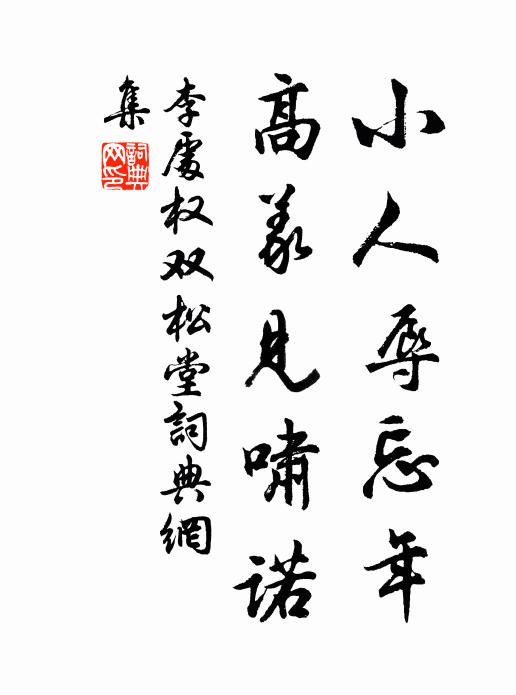 小人辱忘年
高義見嘯诺
李處权双松堂詞典網
集
詞典網印